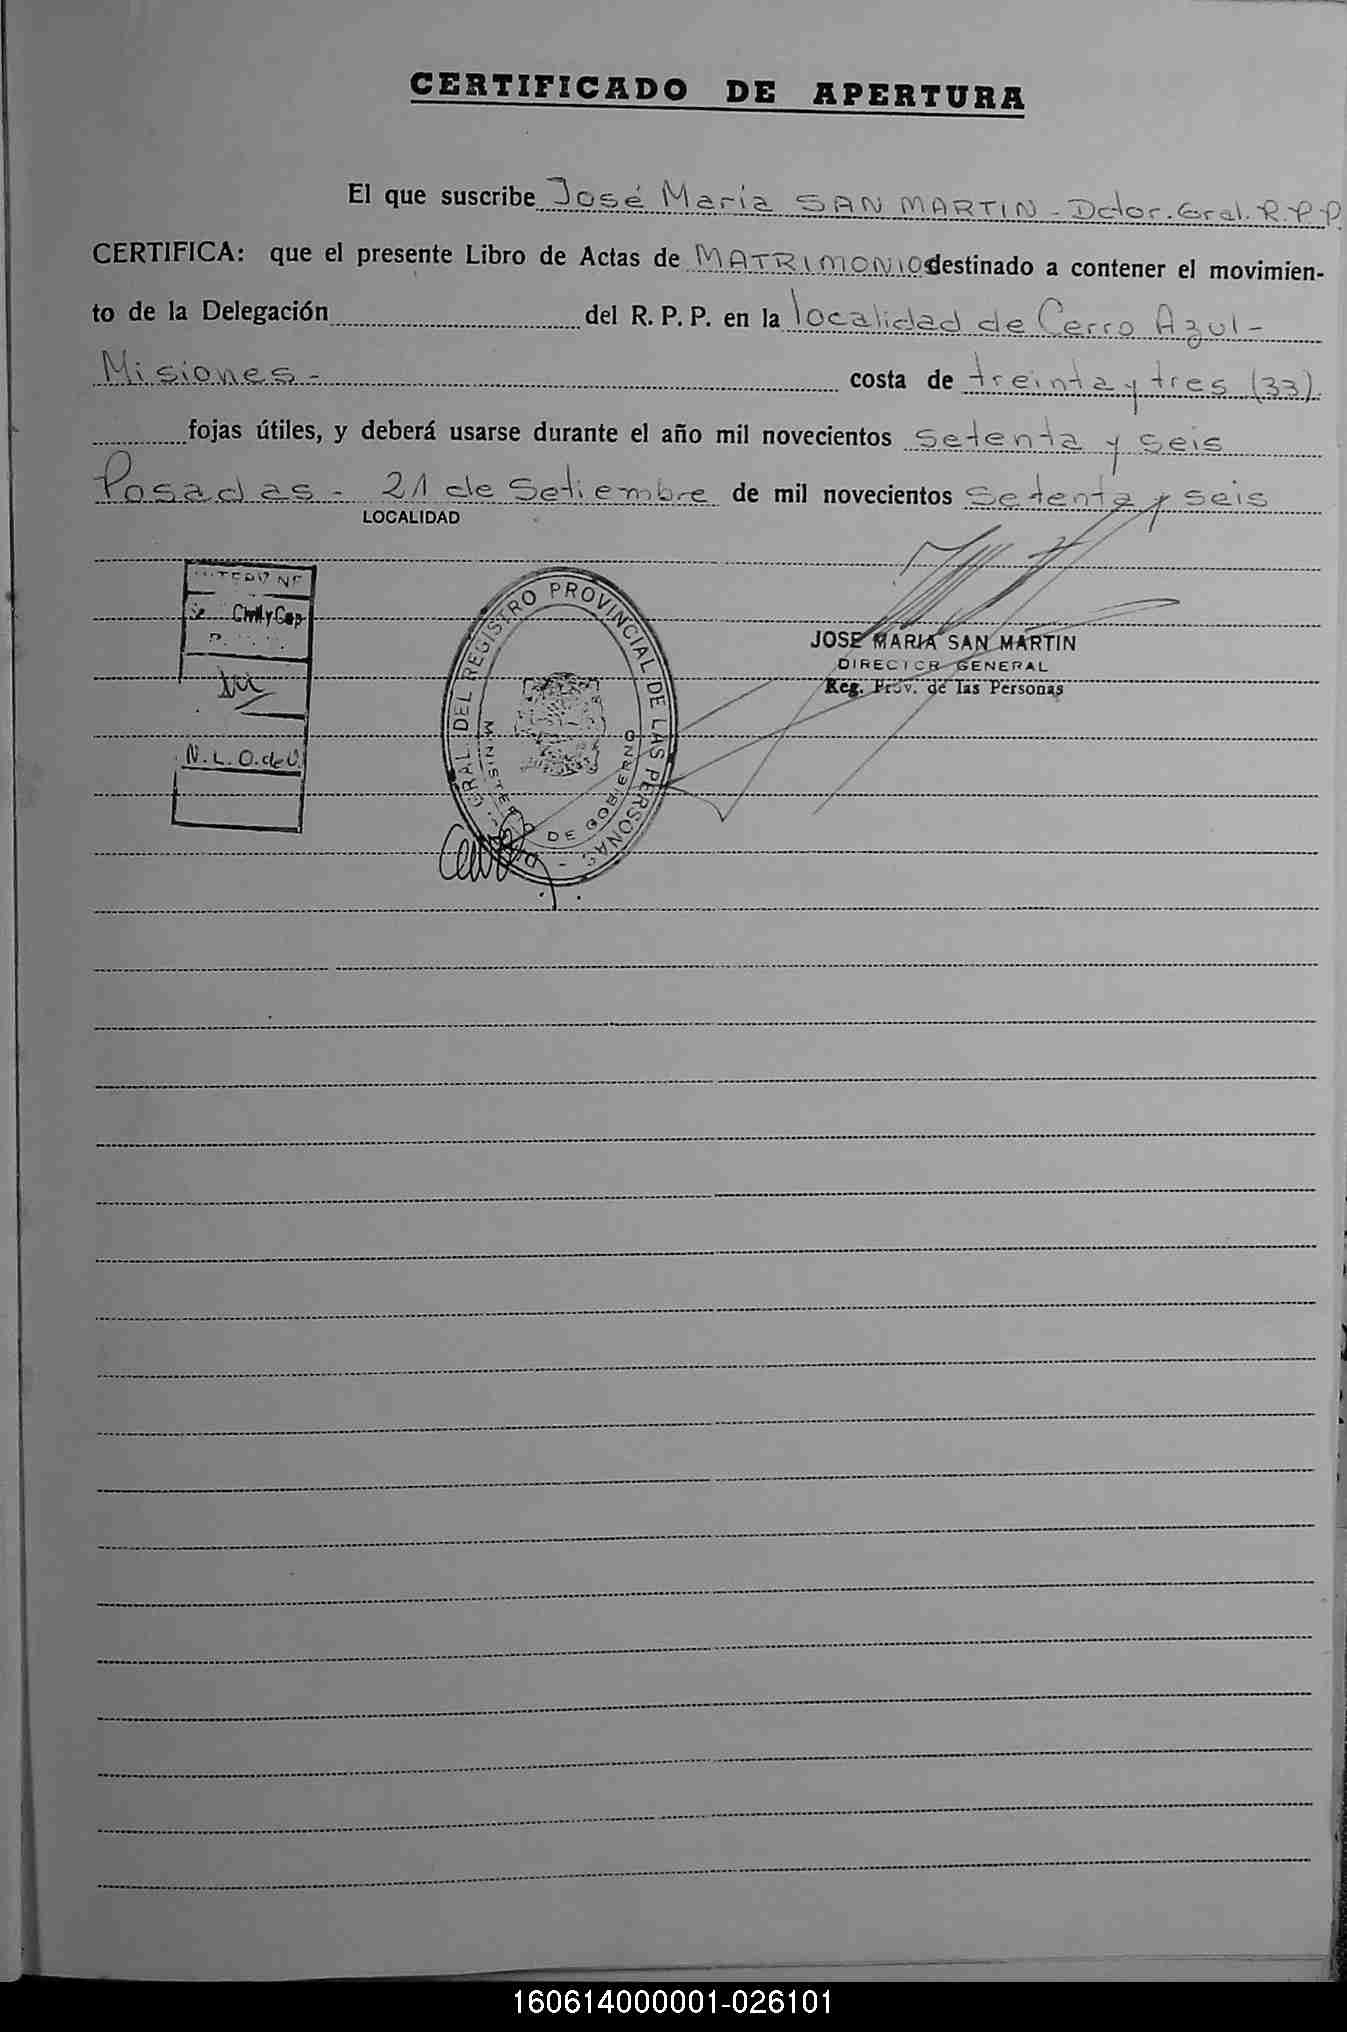 CERTIFICADO DE APERTURA
El que suscribe José María SAN MARTIN - Dctor. Gral. R.P.P.
CERTIFICA: que el presente Libro de Actas de MATRIMONIO destinado a contener el movimien-
to de la Delegación del R. P. P. en la localidad de Cerro Azul -
Misiones - costa de treinta y tres (33).
fojas útiles, y deberá usarse durante el año mil novecientos setenta y seis
Posadas - 21 de Setiembre de mil novecientos setenta y seis
LOCALIDAD
INTERVINE
Civil y Cap
N. L. O. de O.
GRAL. DEL REGISTRO PROVINCIAL DE LAS PERSONAS -
MINISTERIO DE GOBIERNO
JOSE MARIA SAN MARTIN
DIRECTOR GENERAL
Reg. Prov. de las Personas
160614000001-026101